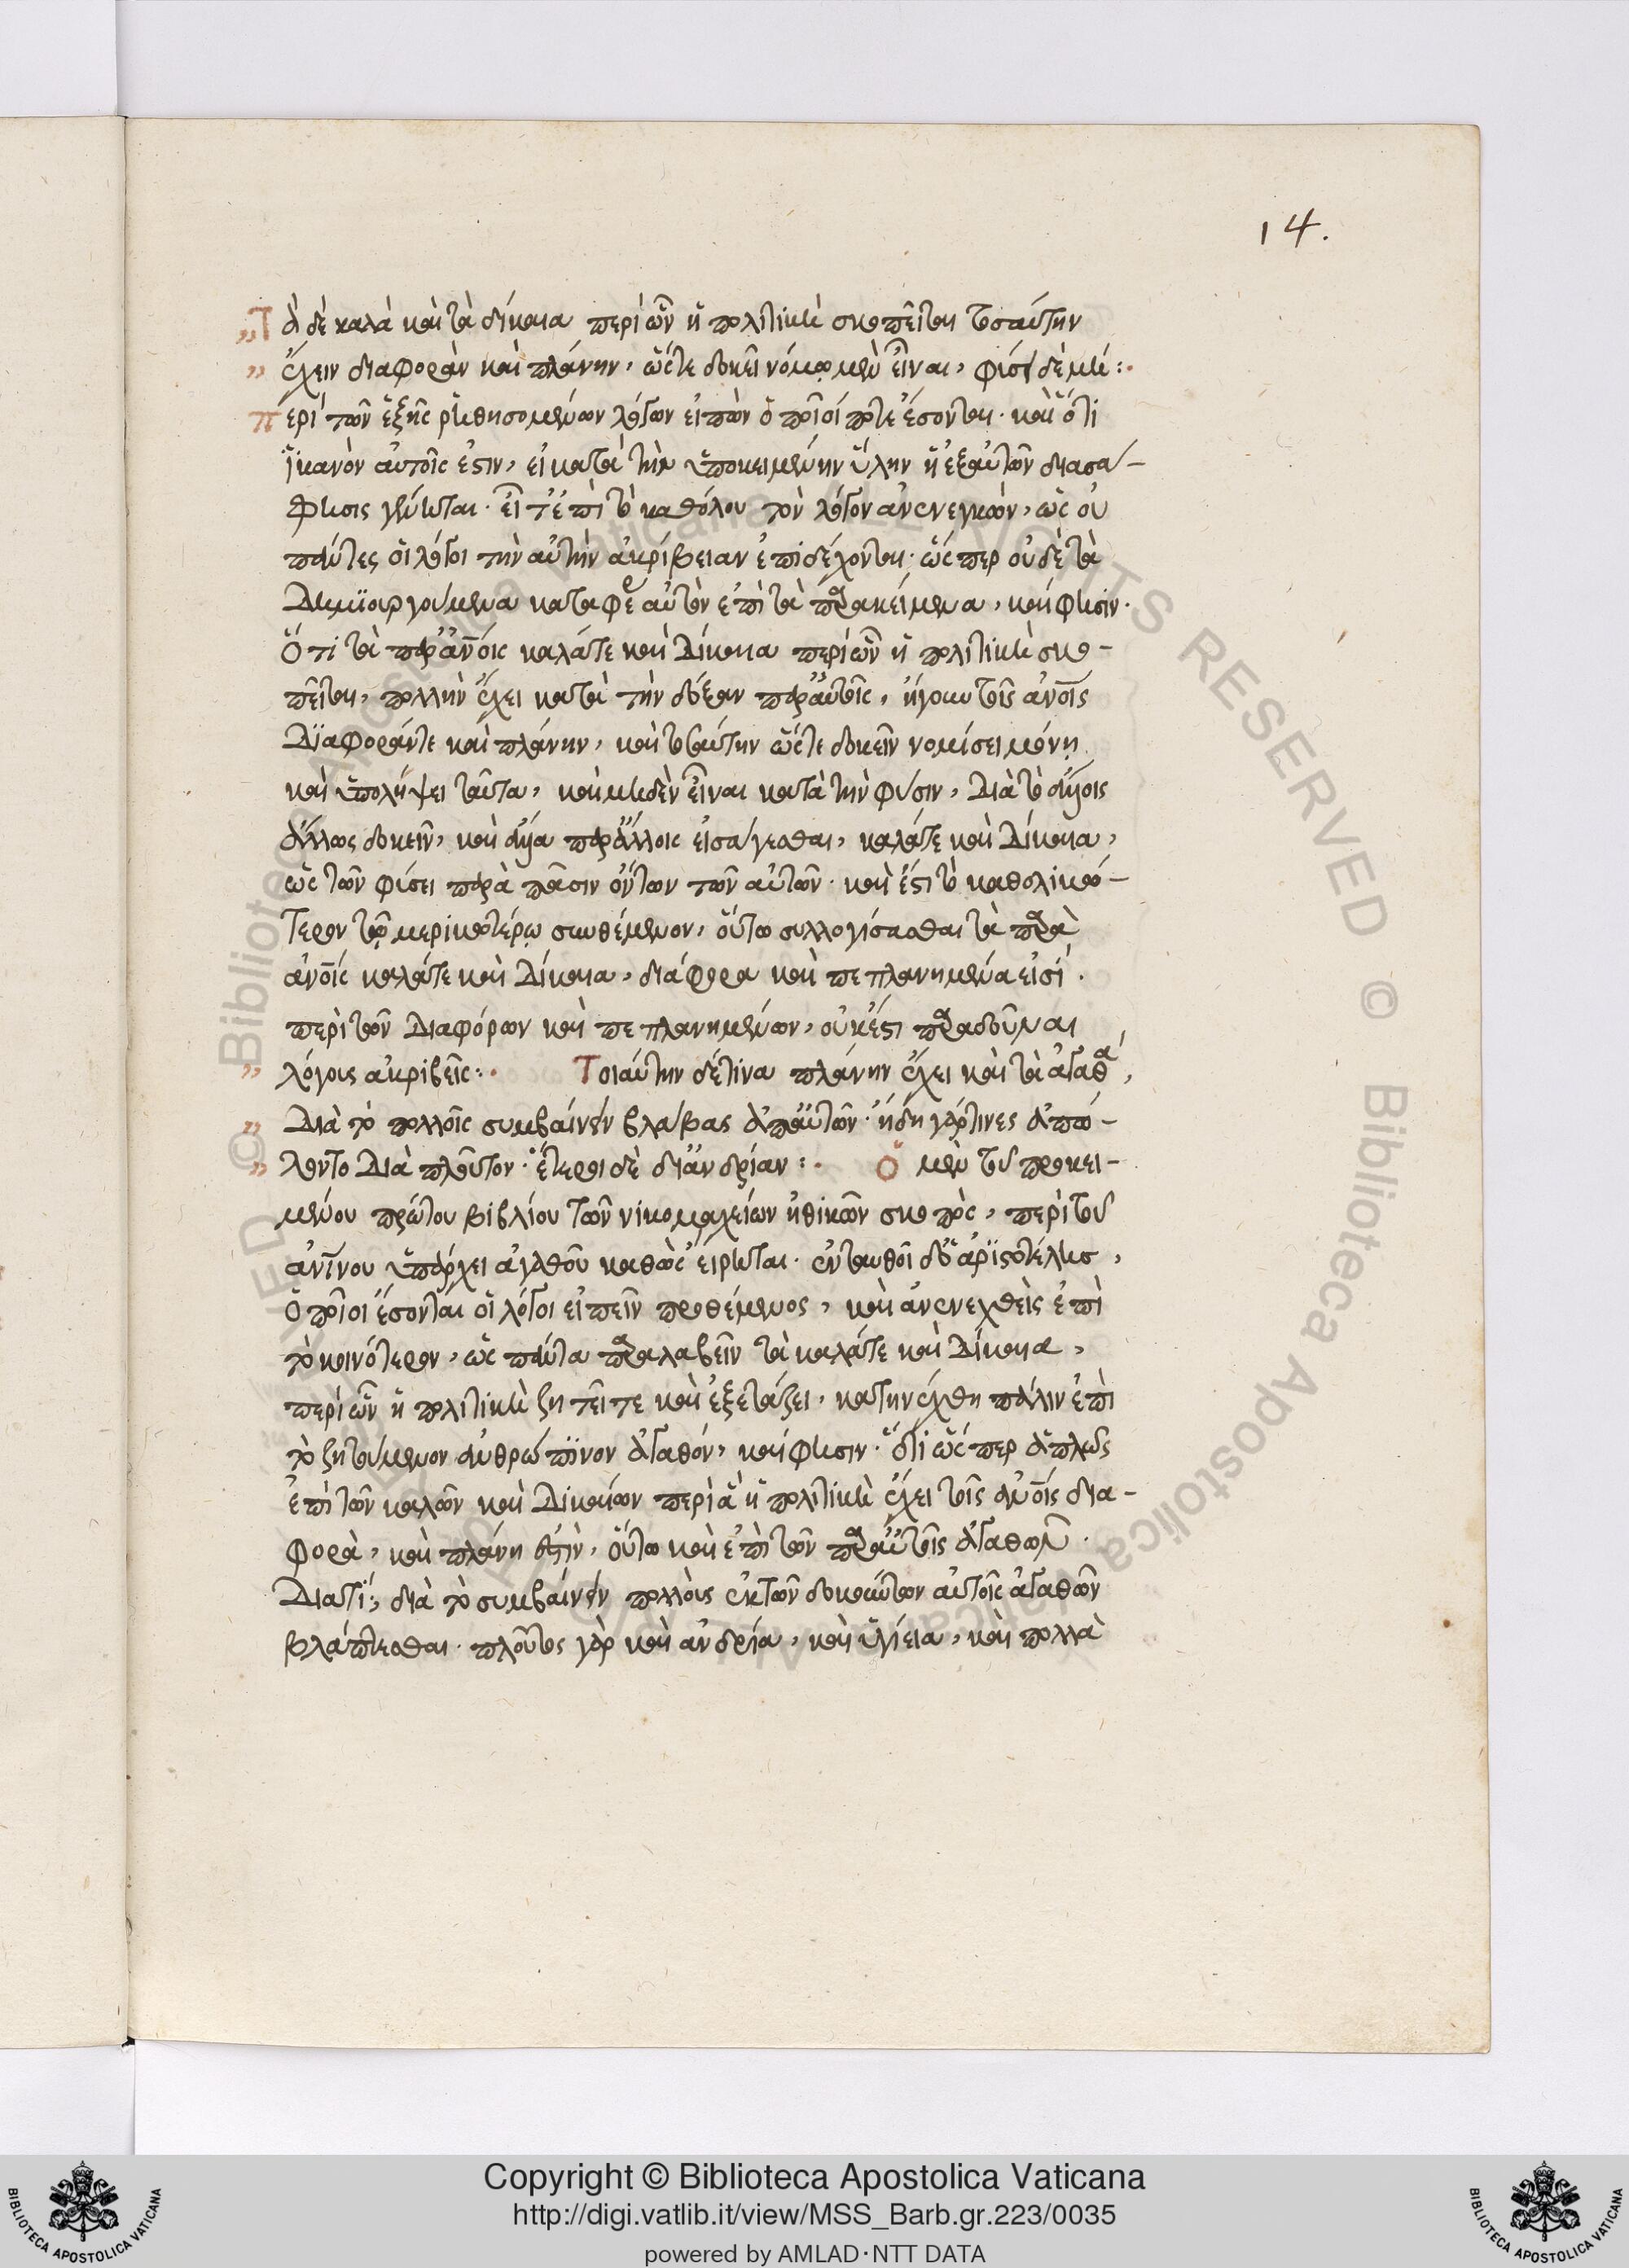 14.
Τὰ δὲ καλὰ καὶ τὰ δίκαια περὶ ὧν ἡ πολιτικὴ σκοπεῖται τοσαύτην
ἔχειν διαφορὰν καὶ πλάνην, ὥστε δοκεῖ νόμῳ μὲν εἶναι, φύσει δὲ μή:.
Περὶ τῶν ἑξῆς ῥηθησομένων λόγων εἰπὼν ὁποῖοί ποτε ἔσονται· καὶ ὅτι
ἱκανὸν αὐτοῖς ἐστιν, εἰ κατὰ τὴν ὑποκειμένην ὕλην ἡ ἐξ αὐτῶν διασά-
φησις γένηται· εἶτ' ἐπὶ τὸ καθόλου τὸν λόγον ἀνενεγκὼν, ὡς οὐ
πάντες οἱ λόγοι τὴν αὐτὴν ἀκρίβειαν ἐπιδέχονται· ὥσπερ οὐδὲ τὰ
δημιουργούμενα αὐτὸν ἐπὶ τὰ προκείμενα, καί φησιν·
Ὅτι τὰ παρ' ἀνοις καλά τε καὶ δίκαια περὶ ὧν ἡ πολιτικὴ σκο-
πεῖται, πολλὴν ἔχει κατὰ τὴν δόξαν παρ' αὐτοῖς, ἤγουν τοῖς ἀνοις
διαφοράν τε καὶ πλάνην, καὶ τοσαύτην ὥστε δοκεῖν νομίσει μόνῃ
καὶ ὑπολήψει ταῦτα, καὶ μηδὲν εἶναι κατὰ τὴν φύσιν, διὰ τὸ ἐνίοις
ἄλλως δοκεῖν, καὶ ἔνια παρ' ἄλλοις εἰσάγεσθαι, καλά τε καὶ δίκαια,
ὡς τῶν φύσει παρὰ πᾶσιν ὄντων τῶν αὐτῶν· καὶ ἔστι τὸ καθολικώ-
τερον τῷ μερικωτέρῳ συνθέμενον, οὕτω συλλογίσασθαι τὰ παρὰ
ἀνοις καλά τε καὶ δίκαια, διάφορα καὶ πεπλανημένα εἰσί.
περὶ τῶν διαφόρων καὶ πεπλανημένων, οὐκ ἔστι παραδοῦναι
λόγους ἀκριβεῖς:. Τοιαύτην δέ τινα πλάνην ἔχει καὶ τὰ ἀγαθά,
διὰ τὸ πολλοῖς συμβαίνειν βλάβας ἀπ' αὐτῶν· ἤδη γάρ τινες ἀπώ-
λοντο διὰ πλοῦτον· ἕτεροι δὲ δι' ἀνδρίαν:. Ὁ μὲν τοῦ προκει-
μένου πρώτου βιβλίου τῶν νικομαχείων ἠθικῶν σκοπὸς, περὶ τοῦ
ἀνίνου ὑπάρχει ἀγαθοῦ καθὼς εἴρηται· ἐνταυθοῖ δ' ὁ ἀριστοτέλης,
ὁποῖοι ἔσονται οἱ λόγοι εἰπεῖν προθέμενος, καὶ ἀνενεχθεὶς ἐπὶ
τὸ κοινότερον, ὡς πάντα παραλαβεῖν τὰ καλά τε καὶ δίκαια,
περὶ ὧν ἡ πολιτικὴ ζητεῖ τε καὶ ἐξετάζει, κατηνέχθη πάλιν ἐπὶ
τὸ ζητούμενον ἀνθρώπινον ἀγαθόν, καί φησιν· ὅτι ὥσπερ ἁπλῶς
ἐπὶ τῶν καλῶν καὶ δικαίων περὶ ἃ ἡ πολιτικὴ ἔχει τοῖς ἀνοις δια-
φορὰ, καὶ πλάνη ἐστὶν, οὕτω καὶ ἐπὶ τῶν παρ' αὐτοῖς ἀγαθῶν·
διατί; διὰ τὸ συμβαίνειν πολλοὺς ἐκ τῶν δοκούντων αὐτοῖς ἀγαθῶν
βλάπτεσθαι· πλοῦτος γὰρ καὶ ἀνδρία, καὶ ὑγίεια, καὶ πολλὰ
© Biblioteca Apostolica Vaticana
Copyright © Biblioteca Apostolica Vaticana
http://digi.vatlib.it/view/MSS_Barb.gr.223/0035
powered by AMLAD·NTT DATA
BIBLIOTECA APOSTOLICA VATICANA
BIBLIOTECA APOSTOLICA VATICANA